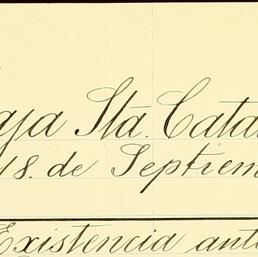 aja Sta. Cata
18. de Septiem
Existencia ant